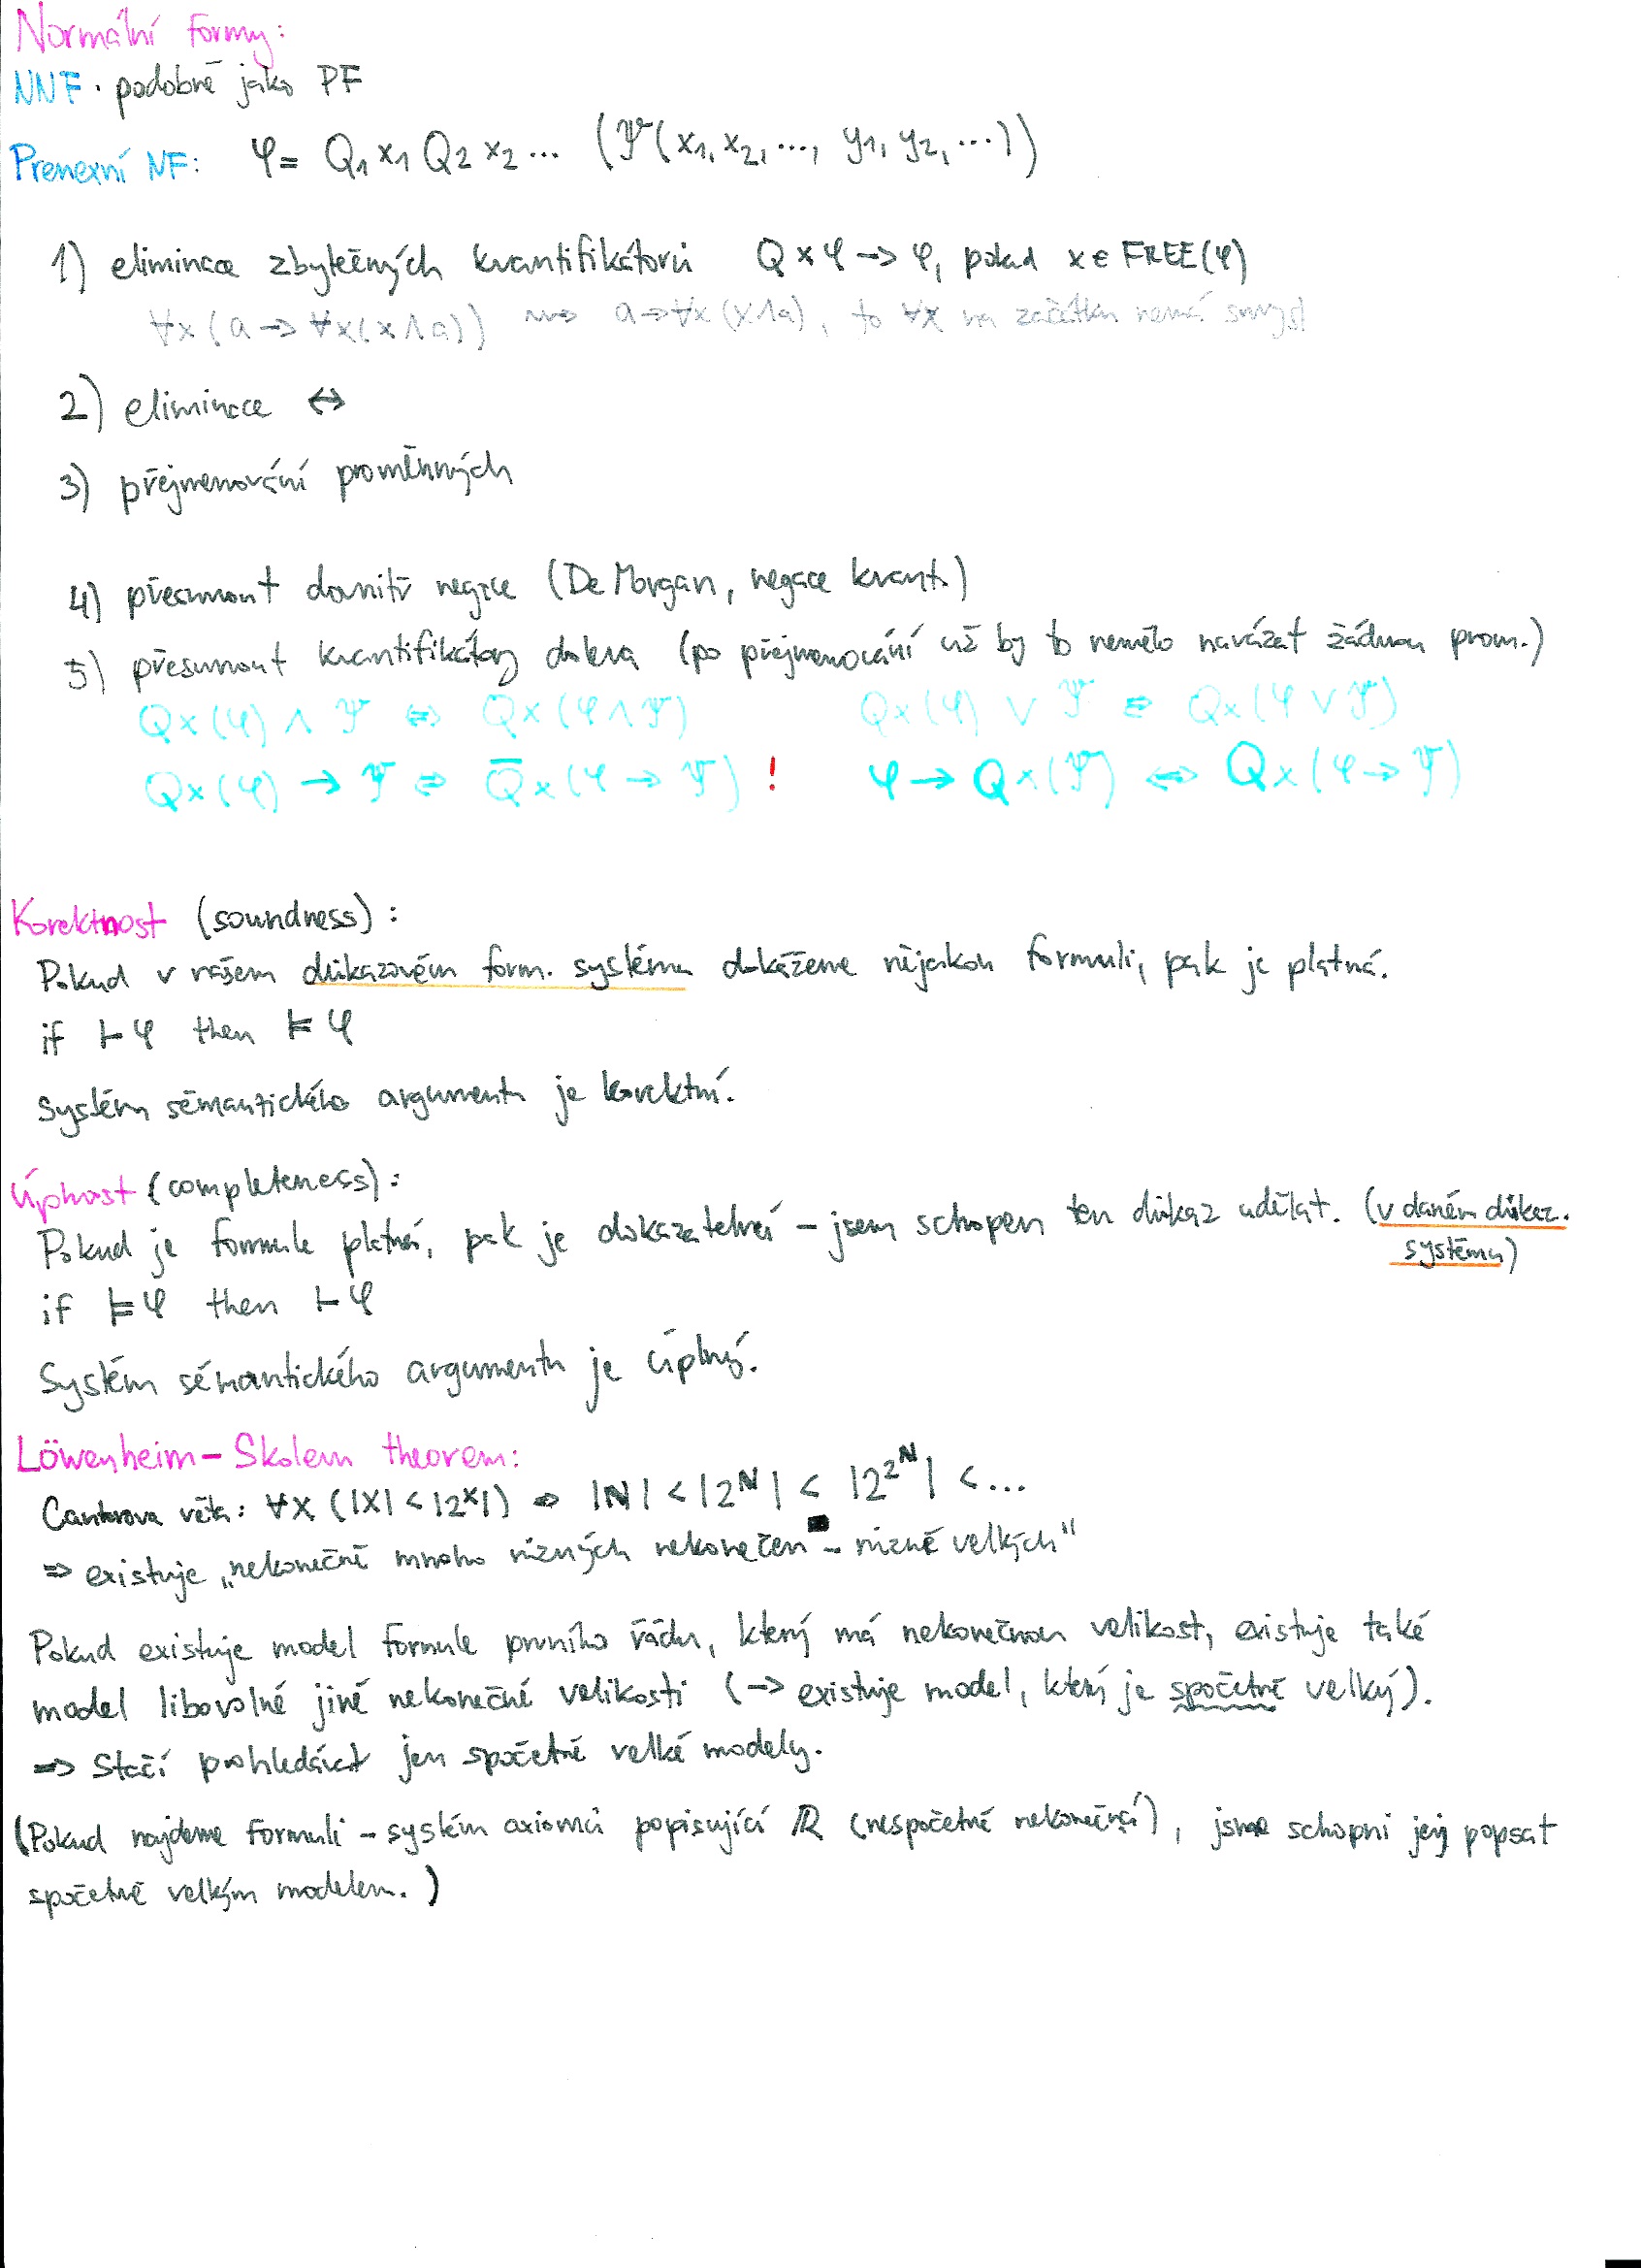 Normální formy:
NNF · podobně jako PF
Prenexní NF: φ = Q₁ x₁ Q₂ x₂ ... (Ψ(x₁, x₂, ..., y₁, y₂, ...))
1) eliminace zbytečných kvantifikátorů Q x φ → φ, pokud x ∈ FREE(φ)
∀x (a → ∀x(x ∧ a)) ⇝ a → ∀x (x ∧ a), to ∀x na začátku nemá smysl
2) eliminace ↔
3) přejmenování proměnných
4) přesunout dovnitř negace (De Morgan, negace kvant.)
5) přesunout kvantifikátory doleva (po přejmenování už by to nemělo navázat žádnou prom.)
Qx(φ) ∧ Ψ ⇔ Qx(φ ∧ Ψ) Qx(φ) ∨ Ψ ⇔ Qx(φ ∨ Ψ)
Qx(φ) → Ψ ⇔ Q̄x(φ → Ψ) ! φ → Qx(Ψ) ⇔ Qx(φ → Ψ)
Korektnost (soundness):
Pokud v našem důkazovém form. systému dokážeme nějakou formuli, pak je platná.
if ⊢ φ then ⊨ φ
Systém sémantického argumentu je korektní.
Úplnost (completeness):
Pokud je formule platná, pak je dokazatelná – jsem schopen ten důkaz udělat. (v daném důkaz.
systému)
if ⊨ φ then ⊢ φ
Systém sémantického argumentu je úplný.
Löwenheim – Skolem theorem:
Cantorova věta: ∀X (|X| < |2^X|) ⇒ |ℕ| < |2^ℕ| < |2^2^ℕ| < ...
⇒ existuje „nekonečně mnoho různých nekonečen – různě velkých"
Pokud existuje model formule prvního řádu, který má nekonečnou velikost, existuje také
model libovolné jiné nekonečné velikosti (→ existuje model, který je spočetně velký).
⇒ Stačí prohledávat jen spočetně velké modely.
(Pokud najdeme formuli – systém axiomů popisující ℝ (nespočetně nekonečná), jsme schopni jej popsat
spočetně velkým modelem.)